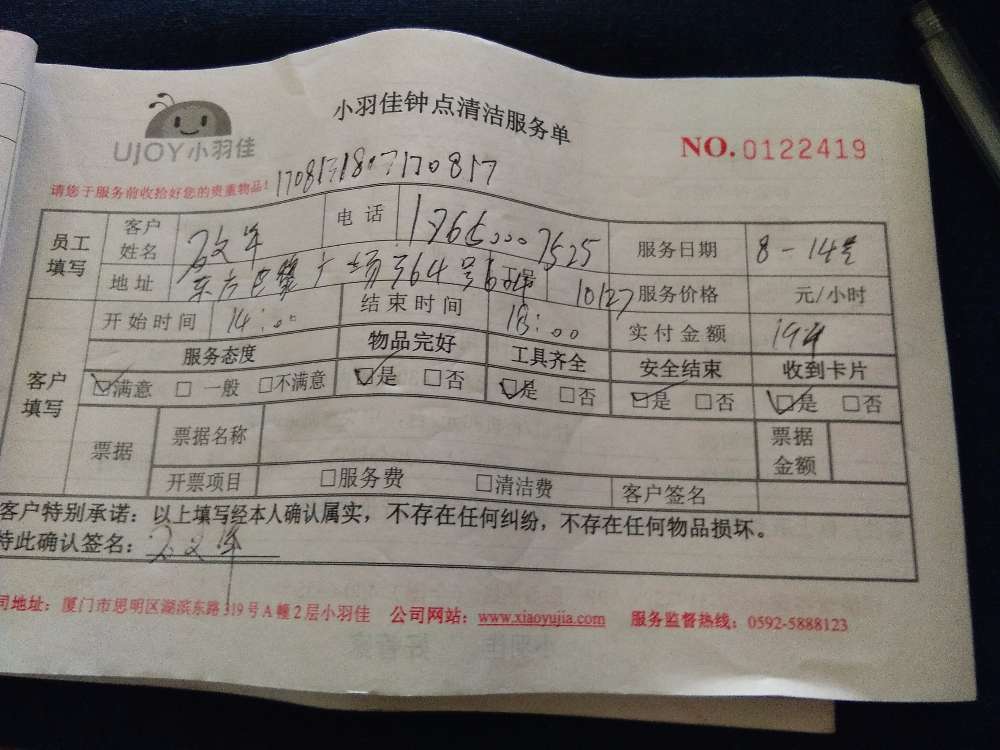 小羽佳钟点清洁服务单
UJOY小羽佳
NO.0122419
请您于服务前收拾好您的贵重物品!
员工填写 客户姓名 电话 服务日期 8-14号
地址 东方巴黎广场364号 服务价格 元/小时
开始时间 14:00 结束时间 18:00 实付金额
客户填写 服务态度 物品完好 工具齐全 安全结束 收到卡片
☑满意 □一般 □不满意 ☑是 □否 ☑是 □否 ☑是 □否 ☑是 □否
票据 票据名称 票据金额
开票项目 □服务费 □清洁费 客户签名
客户特别承诺:以上填写经本人确认属实,不存在任何纠纷,不存在任何物品损坏。
特此确认签名:
司地址:厦门市思明区湖滨东路319号A幢2层小羽佳 公司网站:www.xiaoyujia.com 服务监督热线:0592-5888123